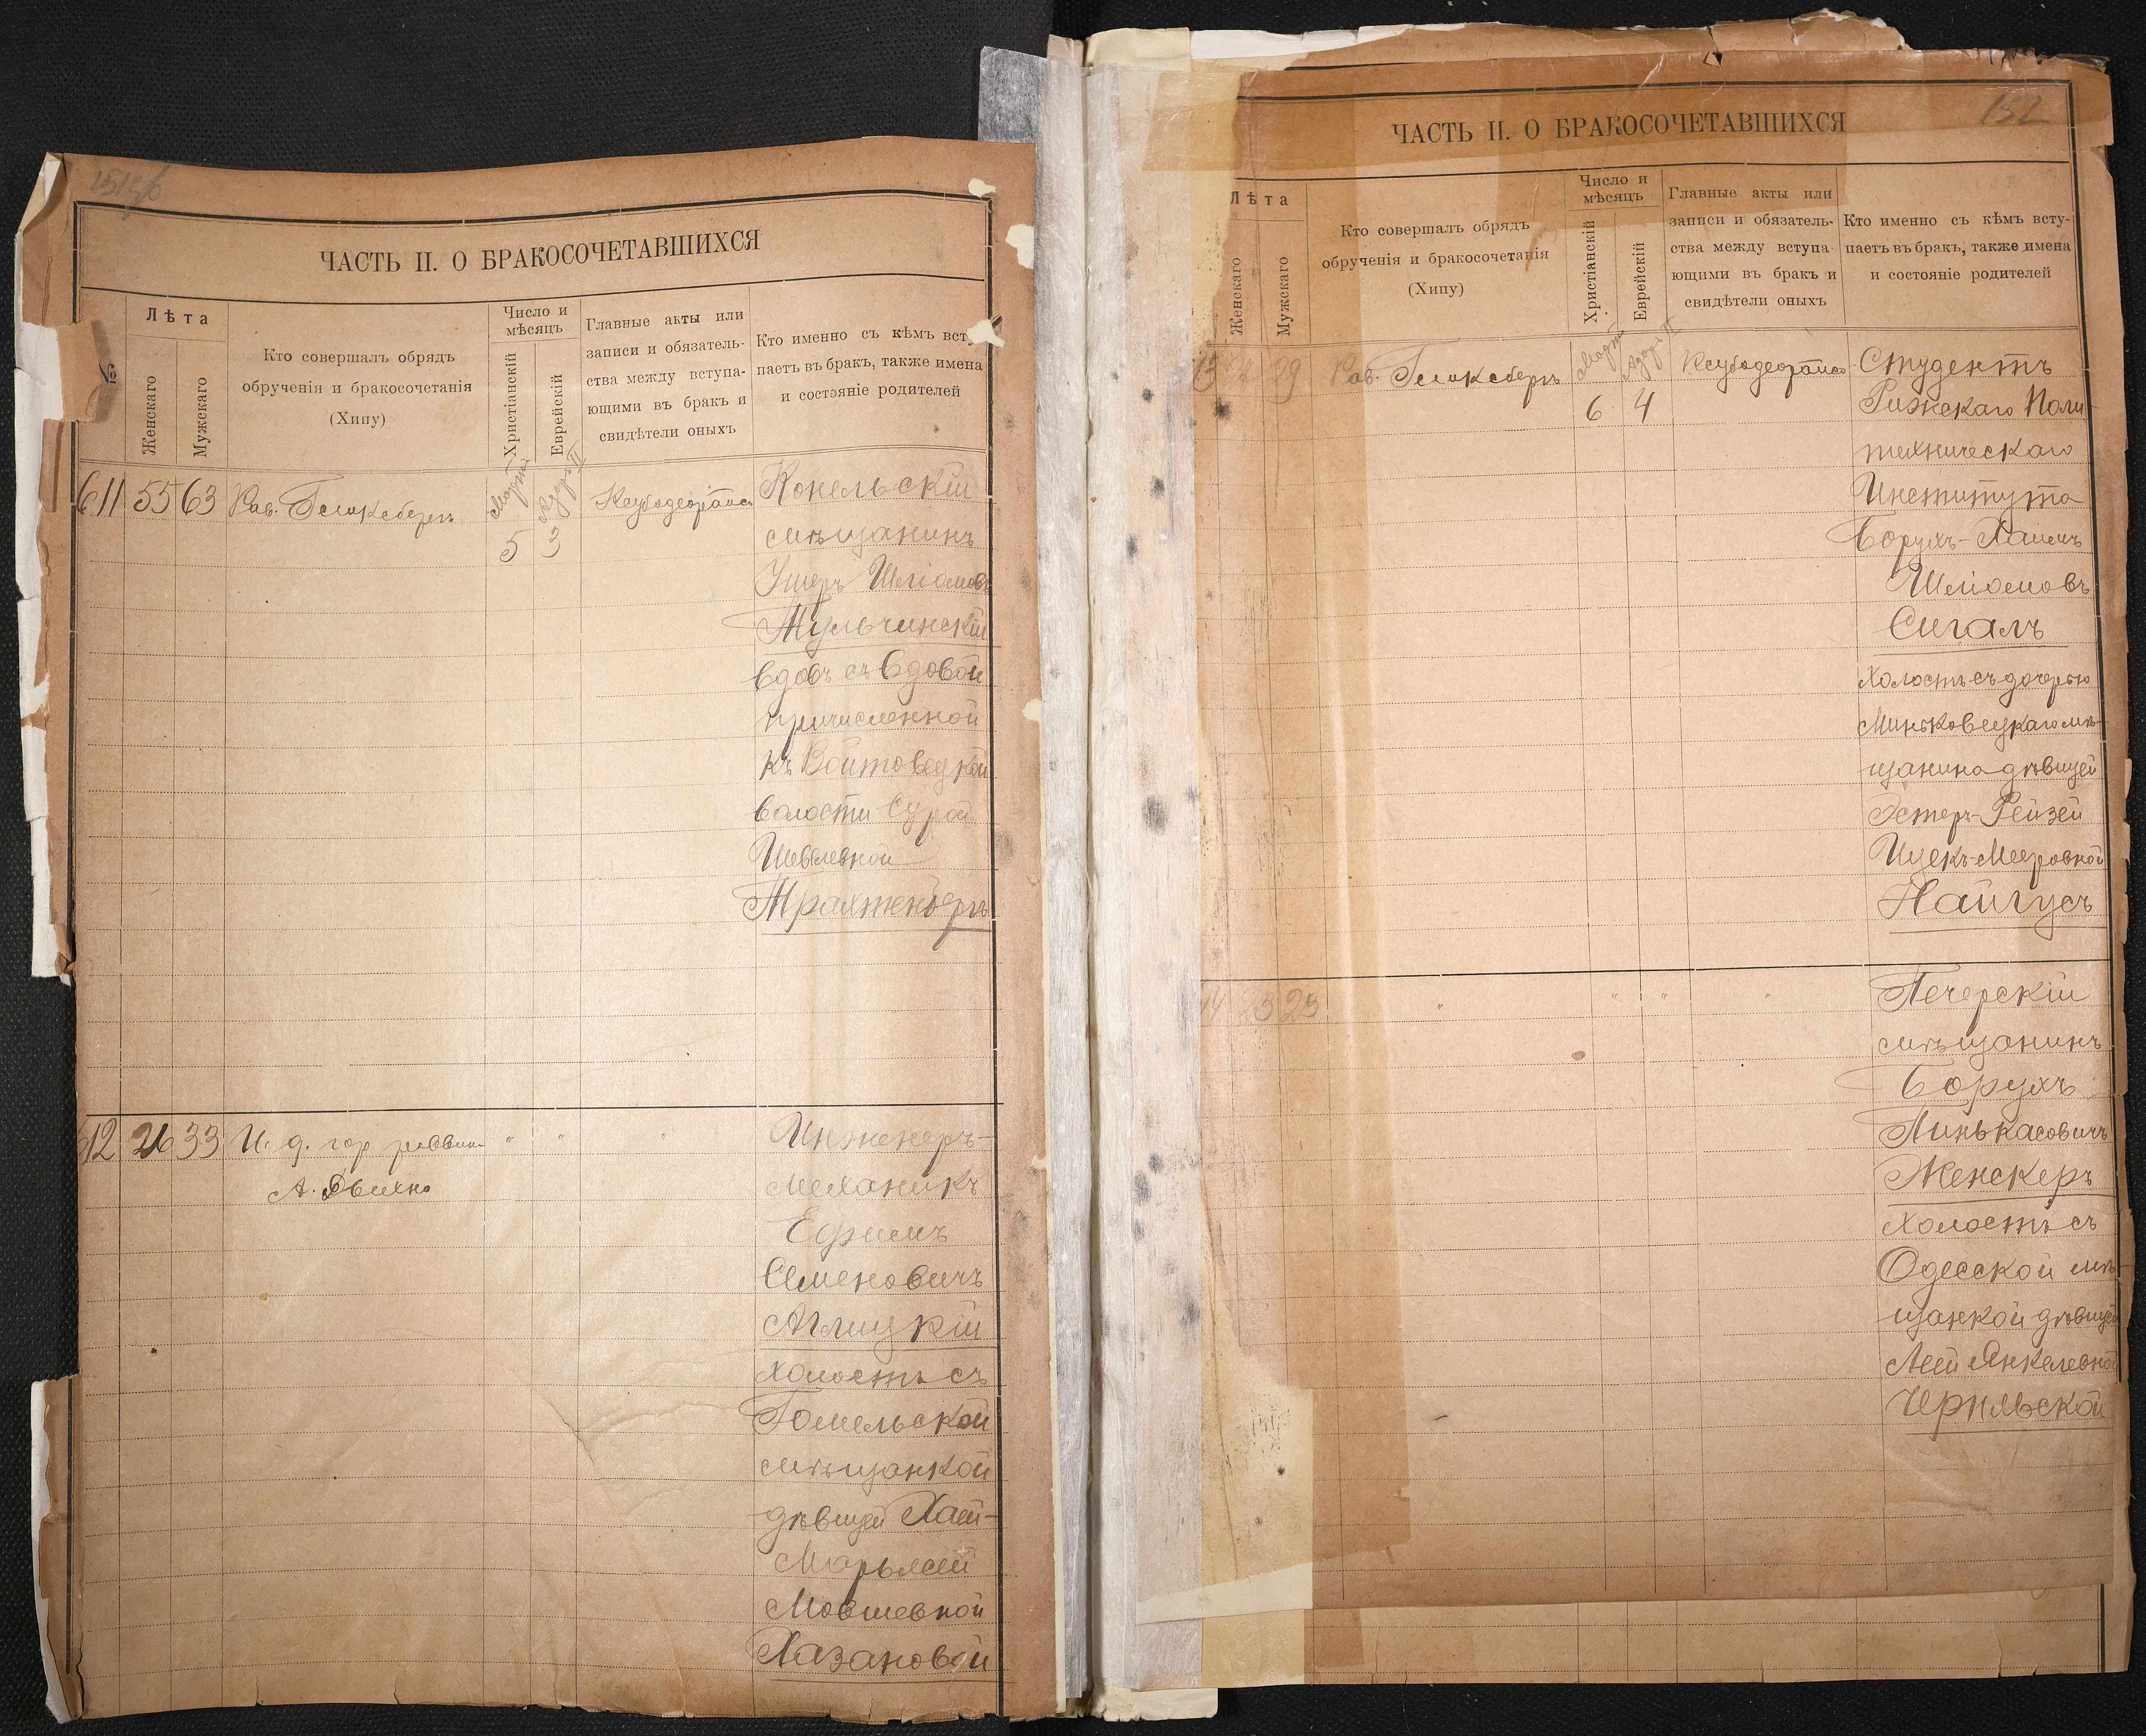 ЧАСТЬ II. О БРАКОСОЧЕТАВШИХСЯ
№
Лѣта
Женскаго
Мужскаго
Кто совершалъ обрядъ
обрученія и бракосочетанія
(Хипу)
Число и
мѣсяцъ
Христіанскій
Еврейскій
Главные акты или
записи и обязатель-
ства между вступа-
ющими въ бракъ и
свидѣтели оныхъ
Кто именно съ кѣмъ всту-
паетъ въ бракъ, также имена
и состояніе родителей
611 55 63 Рав. Геликсбергъ
Мартъ
5
Адаръ II
3
Конельскій
мѣщанинъ
Ушеръ Шліомовъ
Тульчинскій
вдовъ съ вдовой
причисленной
къ Войтовецкой
волости Сурой
Шевелевной
Трахтенбергъ
612 26 33 И. д. гор. раввин.
А. Двихно
" " "
Инженеръ-
механикъ
Ефимъ
Семеновичъ
Аглицкій
холостъ съ
Гомельской
мѣщанкой
дѣвицей Хаей-
Марьясей
Мовшевной
Хазановой
152
ЧАСТЬ II. О БРАКОСОЧЕТАВШИХСЯ
Лѣта
Женскаго
Мужскаго
Кто совершалъ обрядъ
обрученія и бракосочетанія
(Хипу)
Число и
мѣсяцъ
Христіанскій
Еврейскій
Главные акты или
записи и обязатель-
ства между вступа-
ющими въ бракъ и
свидѣтели оныхъ
Кто именно съ кѣмъ всту-
паетъ въ бракъ, также имена
и состояніе родителей
13 29 Рав. Геликсбергъ
Мартъ
6
Адаръ II
4
Студентъ
Рижскаго Поли-
техническаго
Института
Борухъ-Хаимъ
Шліомовъ
Сигалъ
холостъ съ дочерью
Миньковецкаго мѣ-
щанина дѣвицей
Эстеръ-Рейзей
Ицекъ-Мееровной
Найгусъ
14 23 23 " " " "
Печерскій
мѣщанинъ
Борухъ
Пинькасовичъ
Женскеръ
холостъ съ
Одесской мѣ-
щанкой дѣвицей
Леей Янкелевной
Черняьской